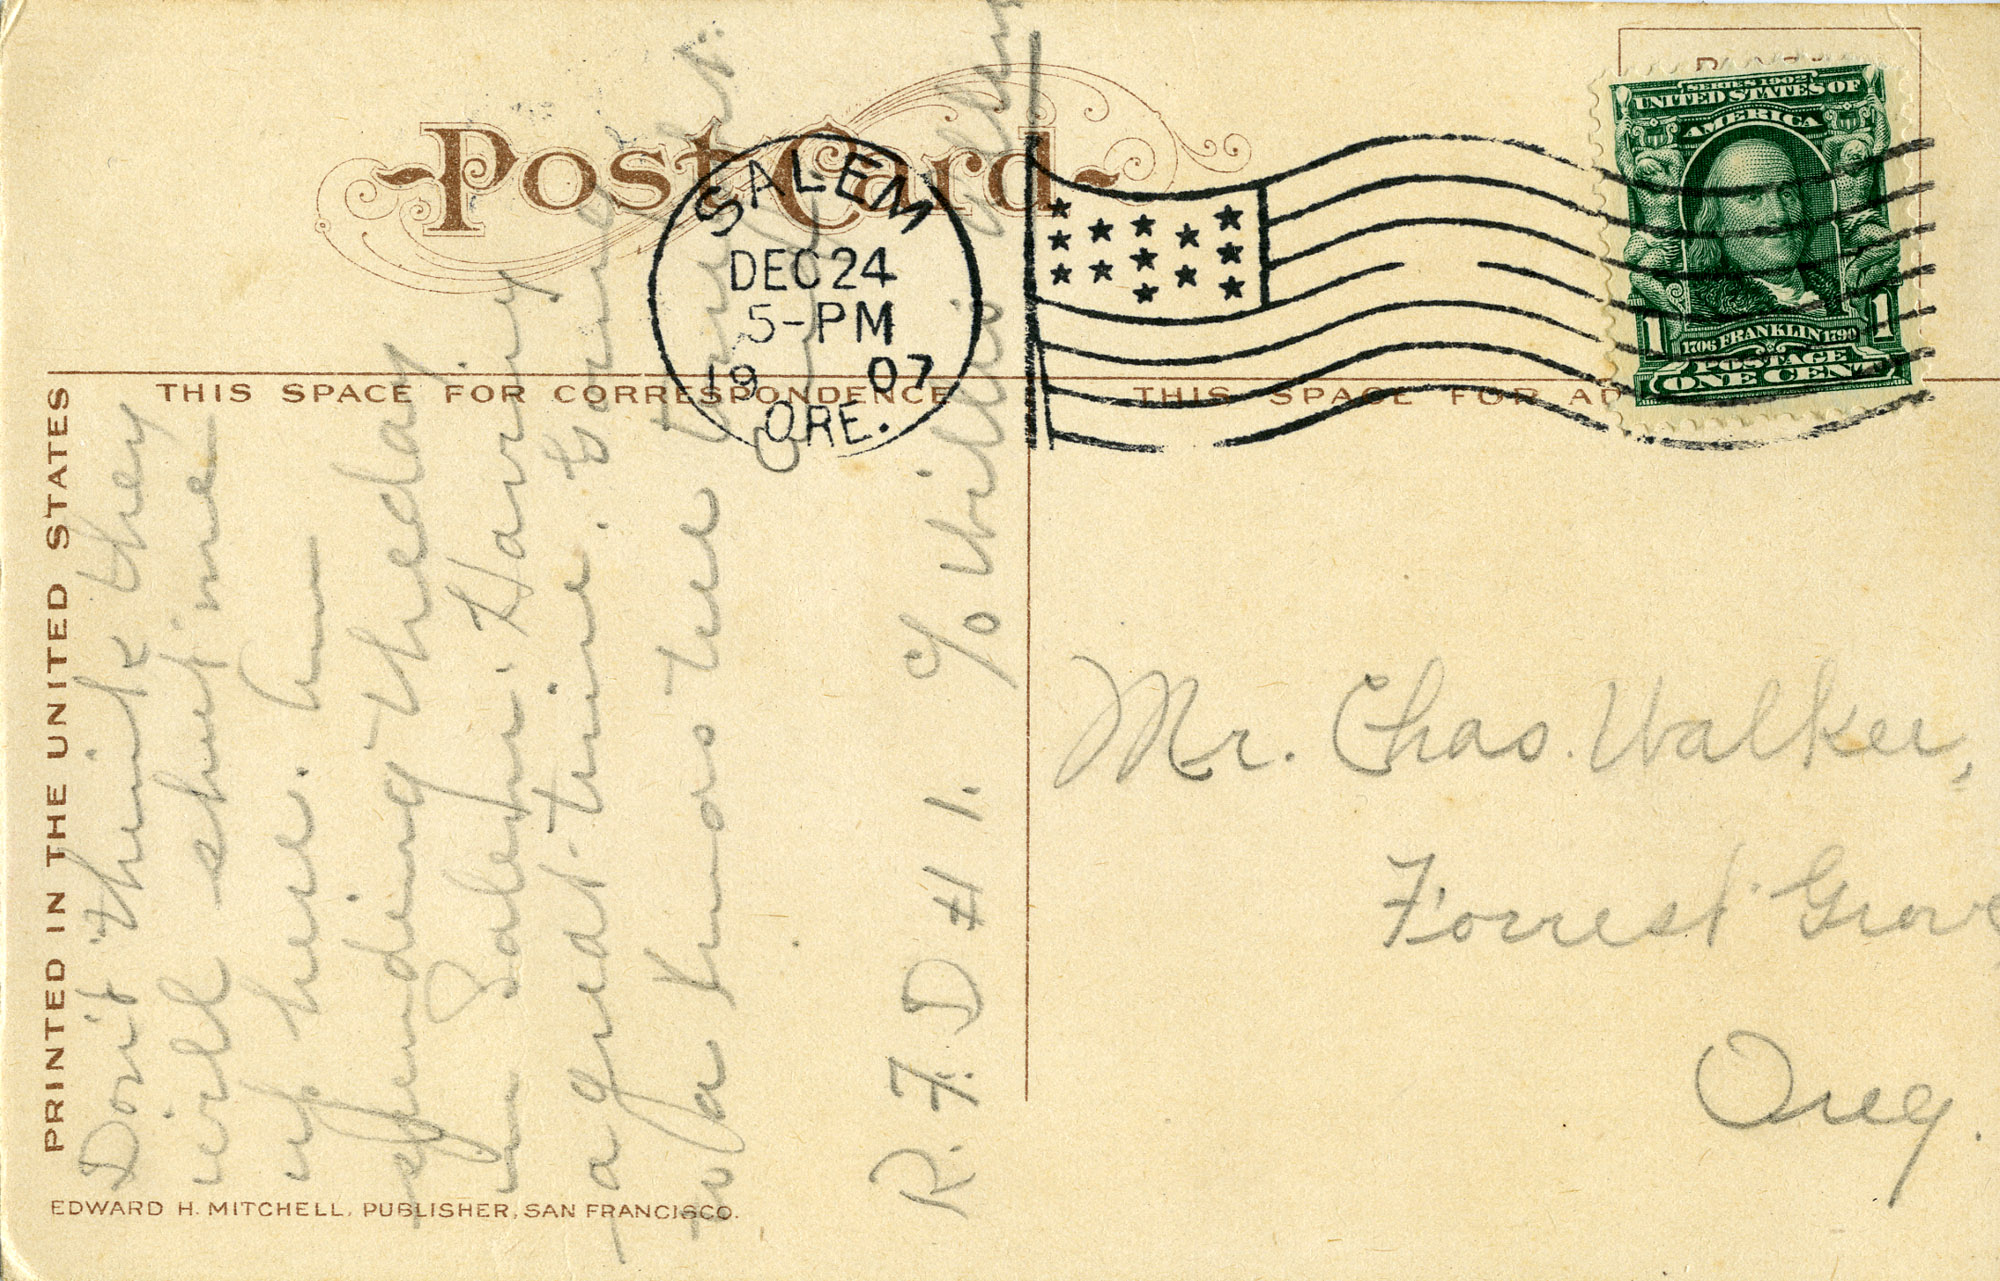 Post Card
SALEM
DEC 24
5-PM
19 07
ORE.
SERIES 1902
UNITED STATES OF
AMERICA
1706 FRANKLIN 1790
1 1
POSTAGE
ONE CENT
THIS SPACE FOR CORRESPONDENCE
THIS SPACE FOR AD
PRINTED IN THE UNITED STATES
Don't think they
will shut me
up here. Am
spending the day
in Salem. Having
a great time. Going
to a Xmas tree tonight.
R. F. D #1. c/o Willis
Mr. Chas. Walker,
Forrest Grove
Oreg.
EDWARD H. MITCHELL, PUBLISHER, SAN FRANCISCO.